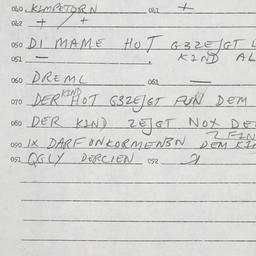 060 KIMPETORN 061 +
062 + / +
050 DI MAME HOT G3ZEJGT
051 — . KIND AL
060 DREML 061 —
070 DER KIND HOT G3ZEJGT FUN DEM
080 DER KIND ZEJGT NOX DE
090 IX DARF ONKORMEN3N DEM KI
091 OGLY DERCIEN 092